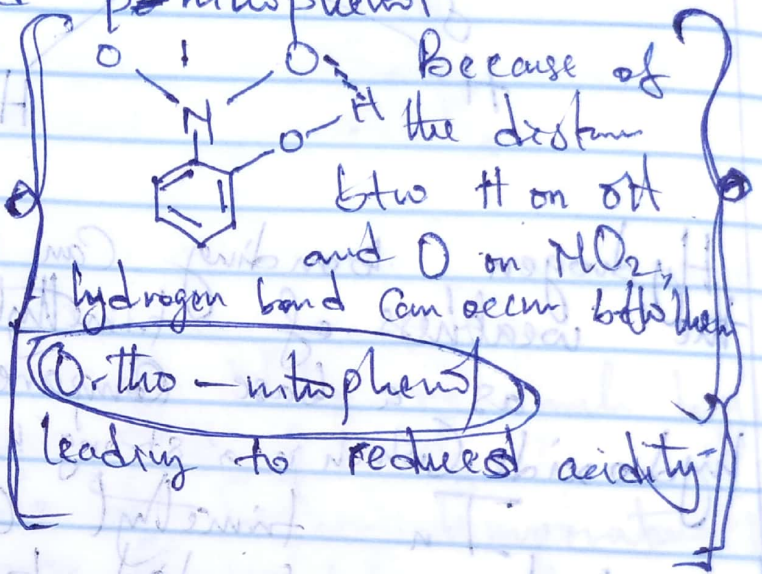 p-nitrophenol
O O Because of
N O H the distan
btw H on OH
and O on NO2,
hydrogen bond can occur btw them
Ortho-nitrophenol
leading to reduced acidity